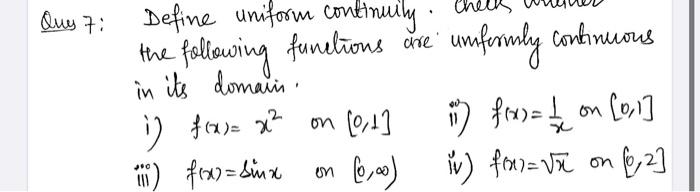 Ques 7: Define uniform continuity. Check whether
the following functions are uniformly continuous
in its domain.
i) f(x) = x² on [0,1] ii) f(x) = 1/x on [0,1]
iii) f(x) = sin x on [0,∞) iv) f(x) = √x on [0,2]